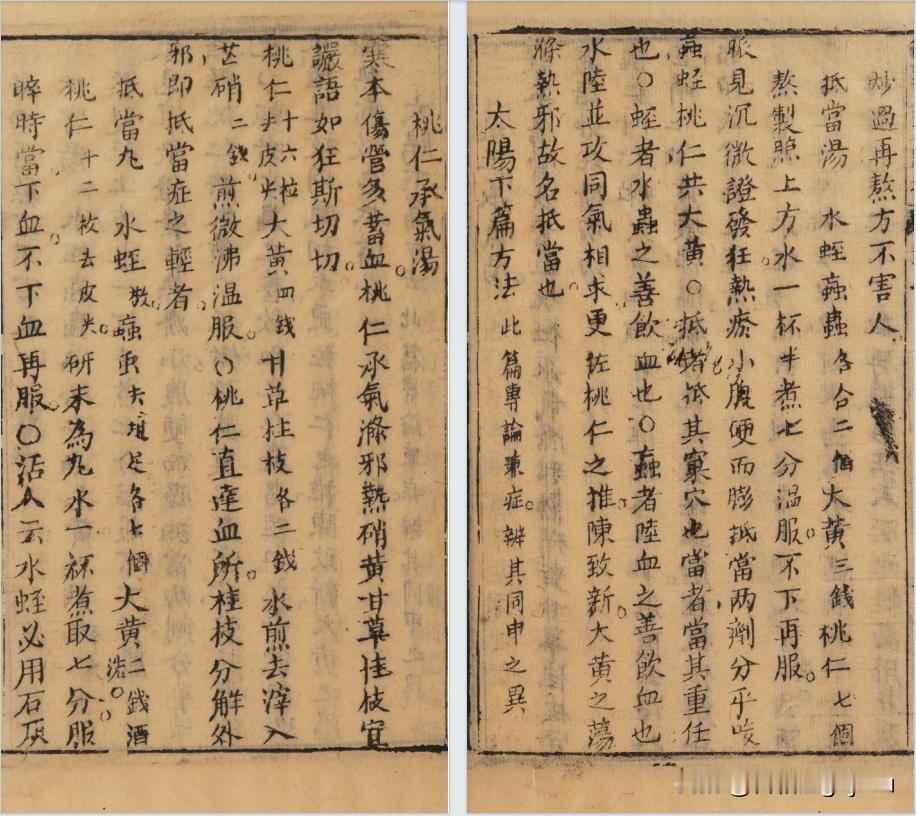 桃仁承氣湯
寒本傷營多蓄血桃仁承氣滌邪熱硝黃甘草桂枝宜
讝語如狂斯切切
桃仁十六粒去皮尖大黃四錢甘草桂枝各二錢水煎去滓入
芒硝二錢煎微沸溫服〇桃仁直達血所桂枝分解外
邪即抵當症之輕者
抵當九 水蛭熬蝱虫去翅足各七個大黃二錢酒洗
桃仁十二枚去皮尖研末為九水一杯煮取七分服
晬時當下血不下血再服〇沾人云水蛭必用石灰
炒過再熬方不害人
抵當湯 水蛭蝱蟲各合二個大黃三錢桃仁七個
熬製照上方水一杯半煮七分溫服不下再服
脈見沉微證發狂熱瘀小腹硬而膨抵當两劑分乎峻
蝱蛭桃仁共大黃〇抵者抵其窠穴也當者當其重任
也〇蛭者水蟲之善飲血也〇蝱者陸血之善飲血也
水陸並攻同氣相求更佐桃仁之推陳致新大黃之蕩
滌熱邪故名抵當也
太陽下篇方法 此篇專論兼症辨其同申之異